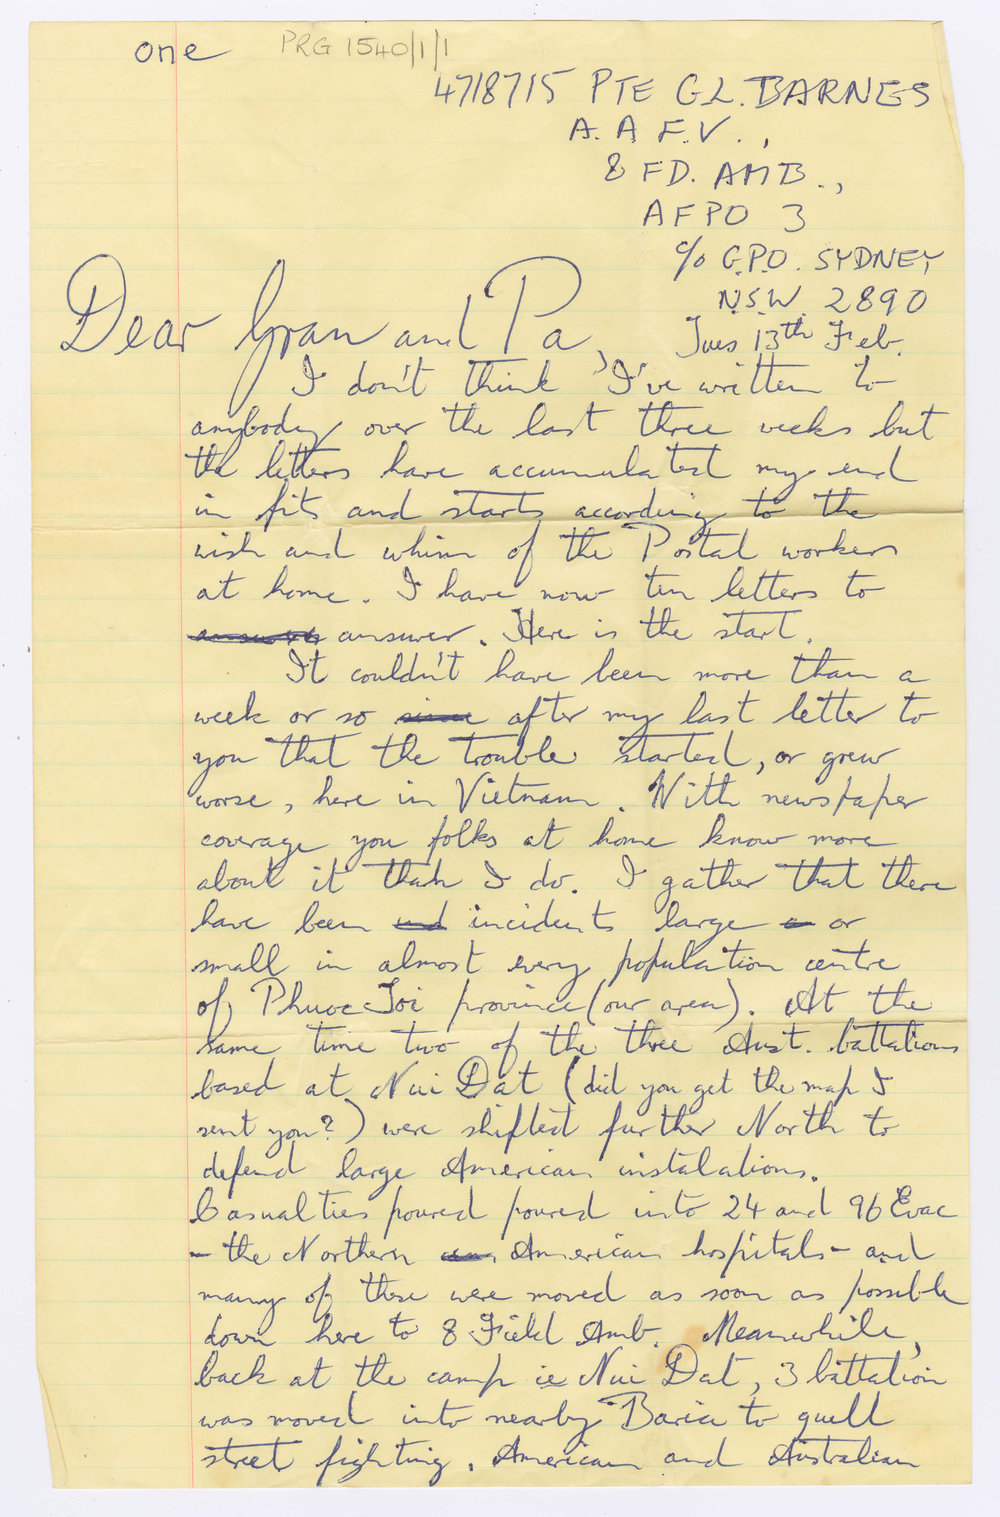 one PRG 1540/1/1
4718715 PTE G.L. BARNES
A.A F.V.,
8 FD. AMB.,
AFPO 3
c/o G.P.O. SYDNEY
N.S.W. 2890
Tues 13th Feb.
Dear Gran and Pa,
I don't think I've written to
anybody over the last three weeks but
the letters have accumulated my end
in fits and starts according to the
wish and whim of the Postal workers
at home. I have now ten letters to
answer. Here is the start.
It couldn't have been more than a
week or so since after my last letter to
you that the trouble started, or grew
worse, here in Vietnam. With newspaper
coverage you folks at home know more
about it than I do. I gather that there
have been und incidents large a or
small in almost every population centre
of Phuoc Toi province (our area). At the
same time two of the three Aust. battalions
based at Nui Dat (did you get the map I
sent you?) were shifted further North to
defend large American instalations.
Casualties poured poured into 24 and 96 Evac
- the Northern American hospitals - and
many of these were moved as soon as possible
down here to 8 Field Amb. Meanwhile,
back at the camp ie Nui Dat, 3 battalion
was moved into nearby Baria to quell
street fighting. American and Australian